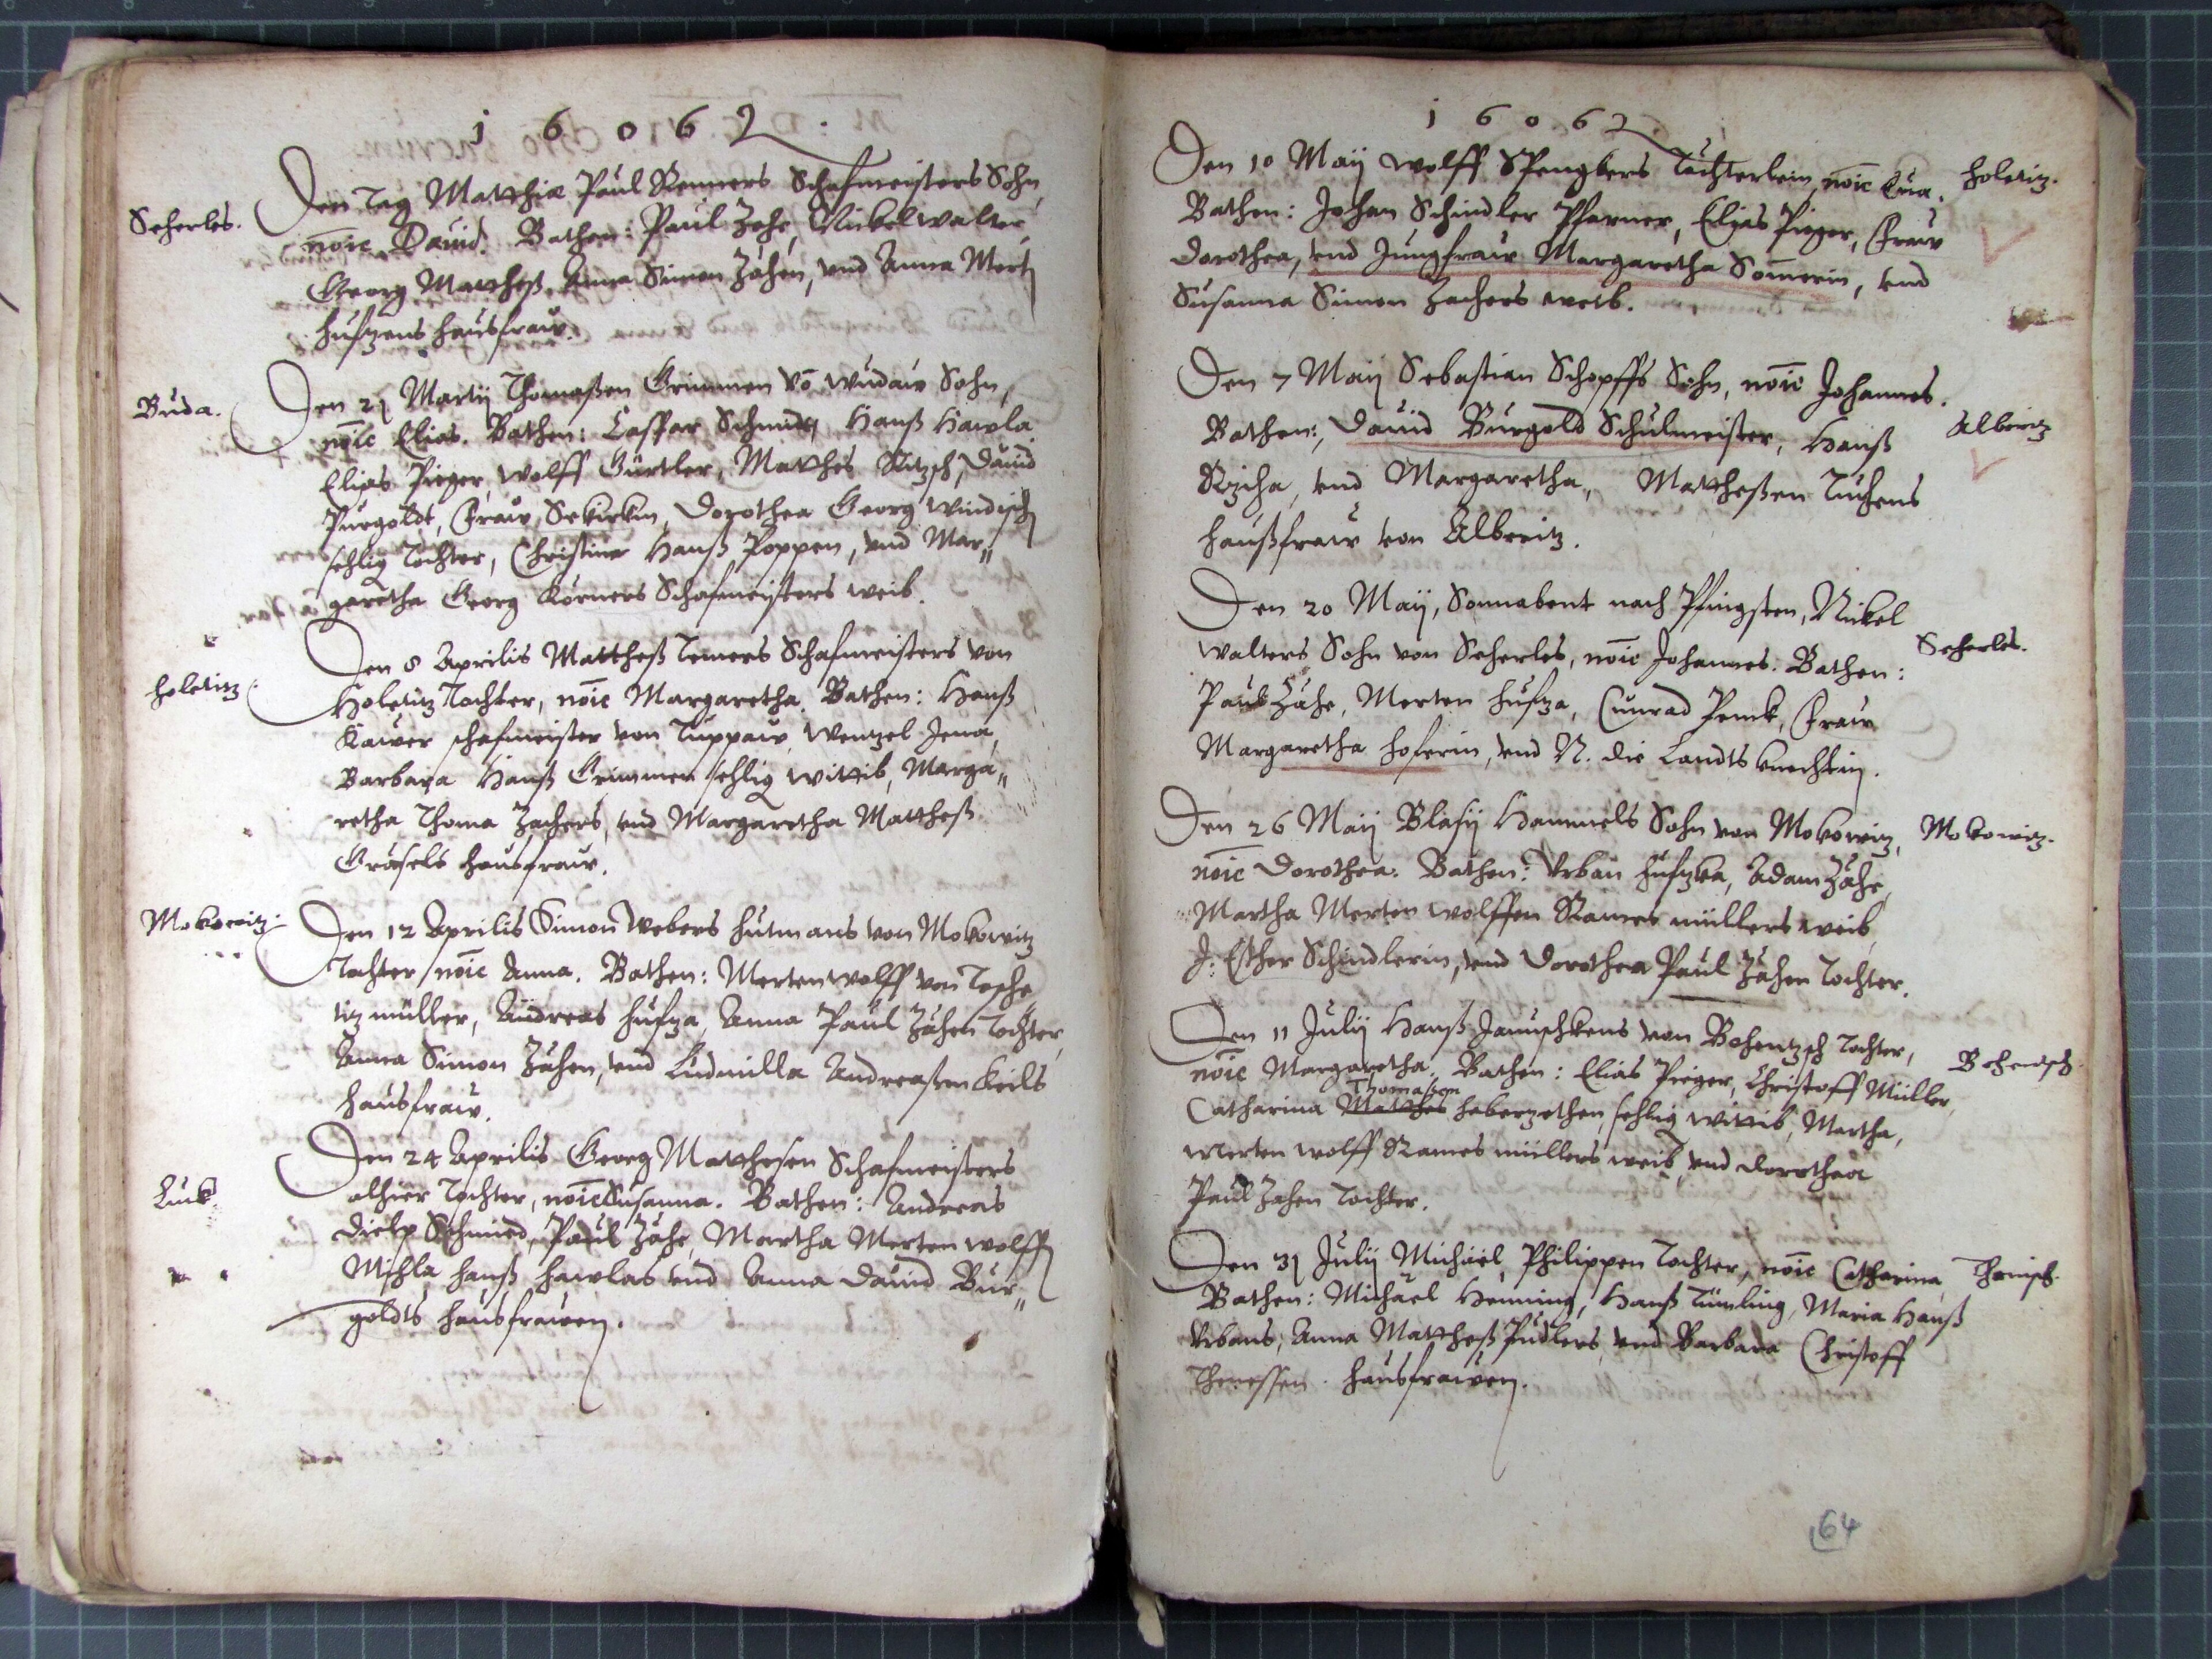 1 6 0 6 2 .
Seherles.
Den Tag Matthiæ Paul Renners Schafmeisters Sohn,
noīe Dauid. Bathen: Paul Zehe, Nickel Walter,
Georg Mattheß, Anna Simon Zähen, vnd Anna Mert
hufzens hausfraw.
Buda.
Den 21 Martij Thomaßen Grimmen vō Wudaw Sohn,
noīe Elias. Bathen: Caspar Schmidt, Hanß Hawla
Elias Pieger, Wolff Gürtler, Matthes Ritzsch, Dauid
Purgoldt, Fraw, Dorothea Georg Windisch
sehlig Tochter, Christina Hanß Poppen, vnd Mar„
garetha Georg Körners Schafmeisters weib.
Holetitz.
Den 8 Aprilis Mattheß Temers Schafmeisters von
Holetitz Tochter, noīe Margaretha. Bathen: Hanß
Kawer schafmeister von Tuppaw, Wentzel Jena,
Barbara Hanß Grimmen sehlig wittib, Marga„
retha Thoma Zachers, vnd Margaretha Mattheß
Gräsels hausfraw.
Mokowitz.
Den 12 Aprilis Simon Webers hutmans von Mokowitz
Tochter, noīe Anna. Bathen: Merten Wolff von Tesche
titz müller, Andreas hufza, Anna Paul Zähen Tochter,
Anna Simon Zähen, vnd Ludmilla Andreaßen Keils
hausfraw.
Luck.
Den 24 Aprilis Georg Matthesen Schafmeisters
alhier Tochter, noīe Susanna. Bathen: Andreas
Dietz Schmied, Paul Zähe, Martha Merten Wolff,
Michla hanß hawlas vnd Anna Dauid Bur„
goldts hausfrawen.
1 6 0 6 2
Den 10 Maij Wolff Spengkers Töchterlein, noīe Eua.
Holetitz.
Bathen: Johan Schindler Pfarner, Elias Pieger, Fraw
Dorothea, vnd Jungfraw Margaretha Som̄erin, vnd
Susanna Simon Zachers weib.
Den 7 Maij Sebastian Schopffs Sohn, noīe Johannes.
Bathen: Dauid Burgold Schulmeister, Hanß
Alberitz
Rzicha, vnd Margaretha, Mattheßen Tuchens
haußfraw von Alberitz.
Den 20 Maij, Sonnabent nach Pfingsten, Nickel
Walters Sohn von Seherles, noīe Johannes. Bathen:
Seherles.
Paul Zähe, Merten hufza, Cunrad Penck, Fraw
Margaretha hoferin, vnd N. die Landtsknechtin.
Den 26 Maij Blasij Hammels Sohn von Mokowitz,
Mokowitz.
noīe Dorothea. Bathen: Vrban hufzka, Adam Zähe,
Martha Merten Wolffen Rames müllers weib,
J. Esther Schindlerin, vnd Dorothea Paul Zähen Tochter.
Den 11 Julij Hanß Januschkens von Bohentzsch Tochter,
Bohentsch.
noīe Margaretha. Bathen: Elias Pieger, Christoff Müller,
Thomaßen
Catharina Matthes haberzethen sehlig wittib, Martha,
Merten Wolff Rames müllers weib, vnd Dorothea
Paul Zahen Tochter.
Den 31 Julij Michäel Philippen Tochter, noīe Catharina,
Thenisch.
Bathen: Michäel Henning, Hanß Tümling, Maria Hanß
Vrbans, Anna Mattheß Pudlers, vnd Barbara Christoff
Theressen hausfrawen.
64